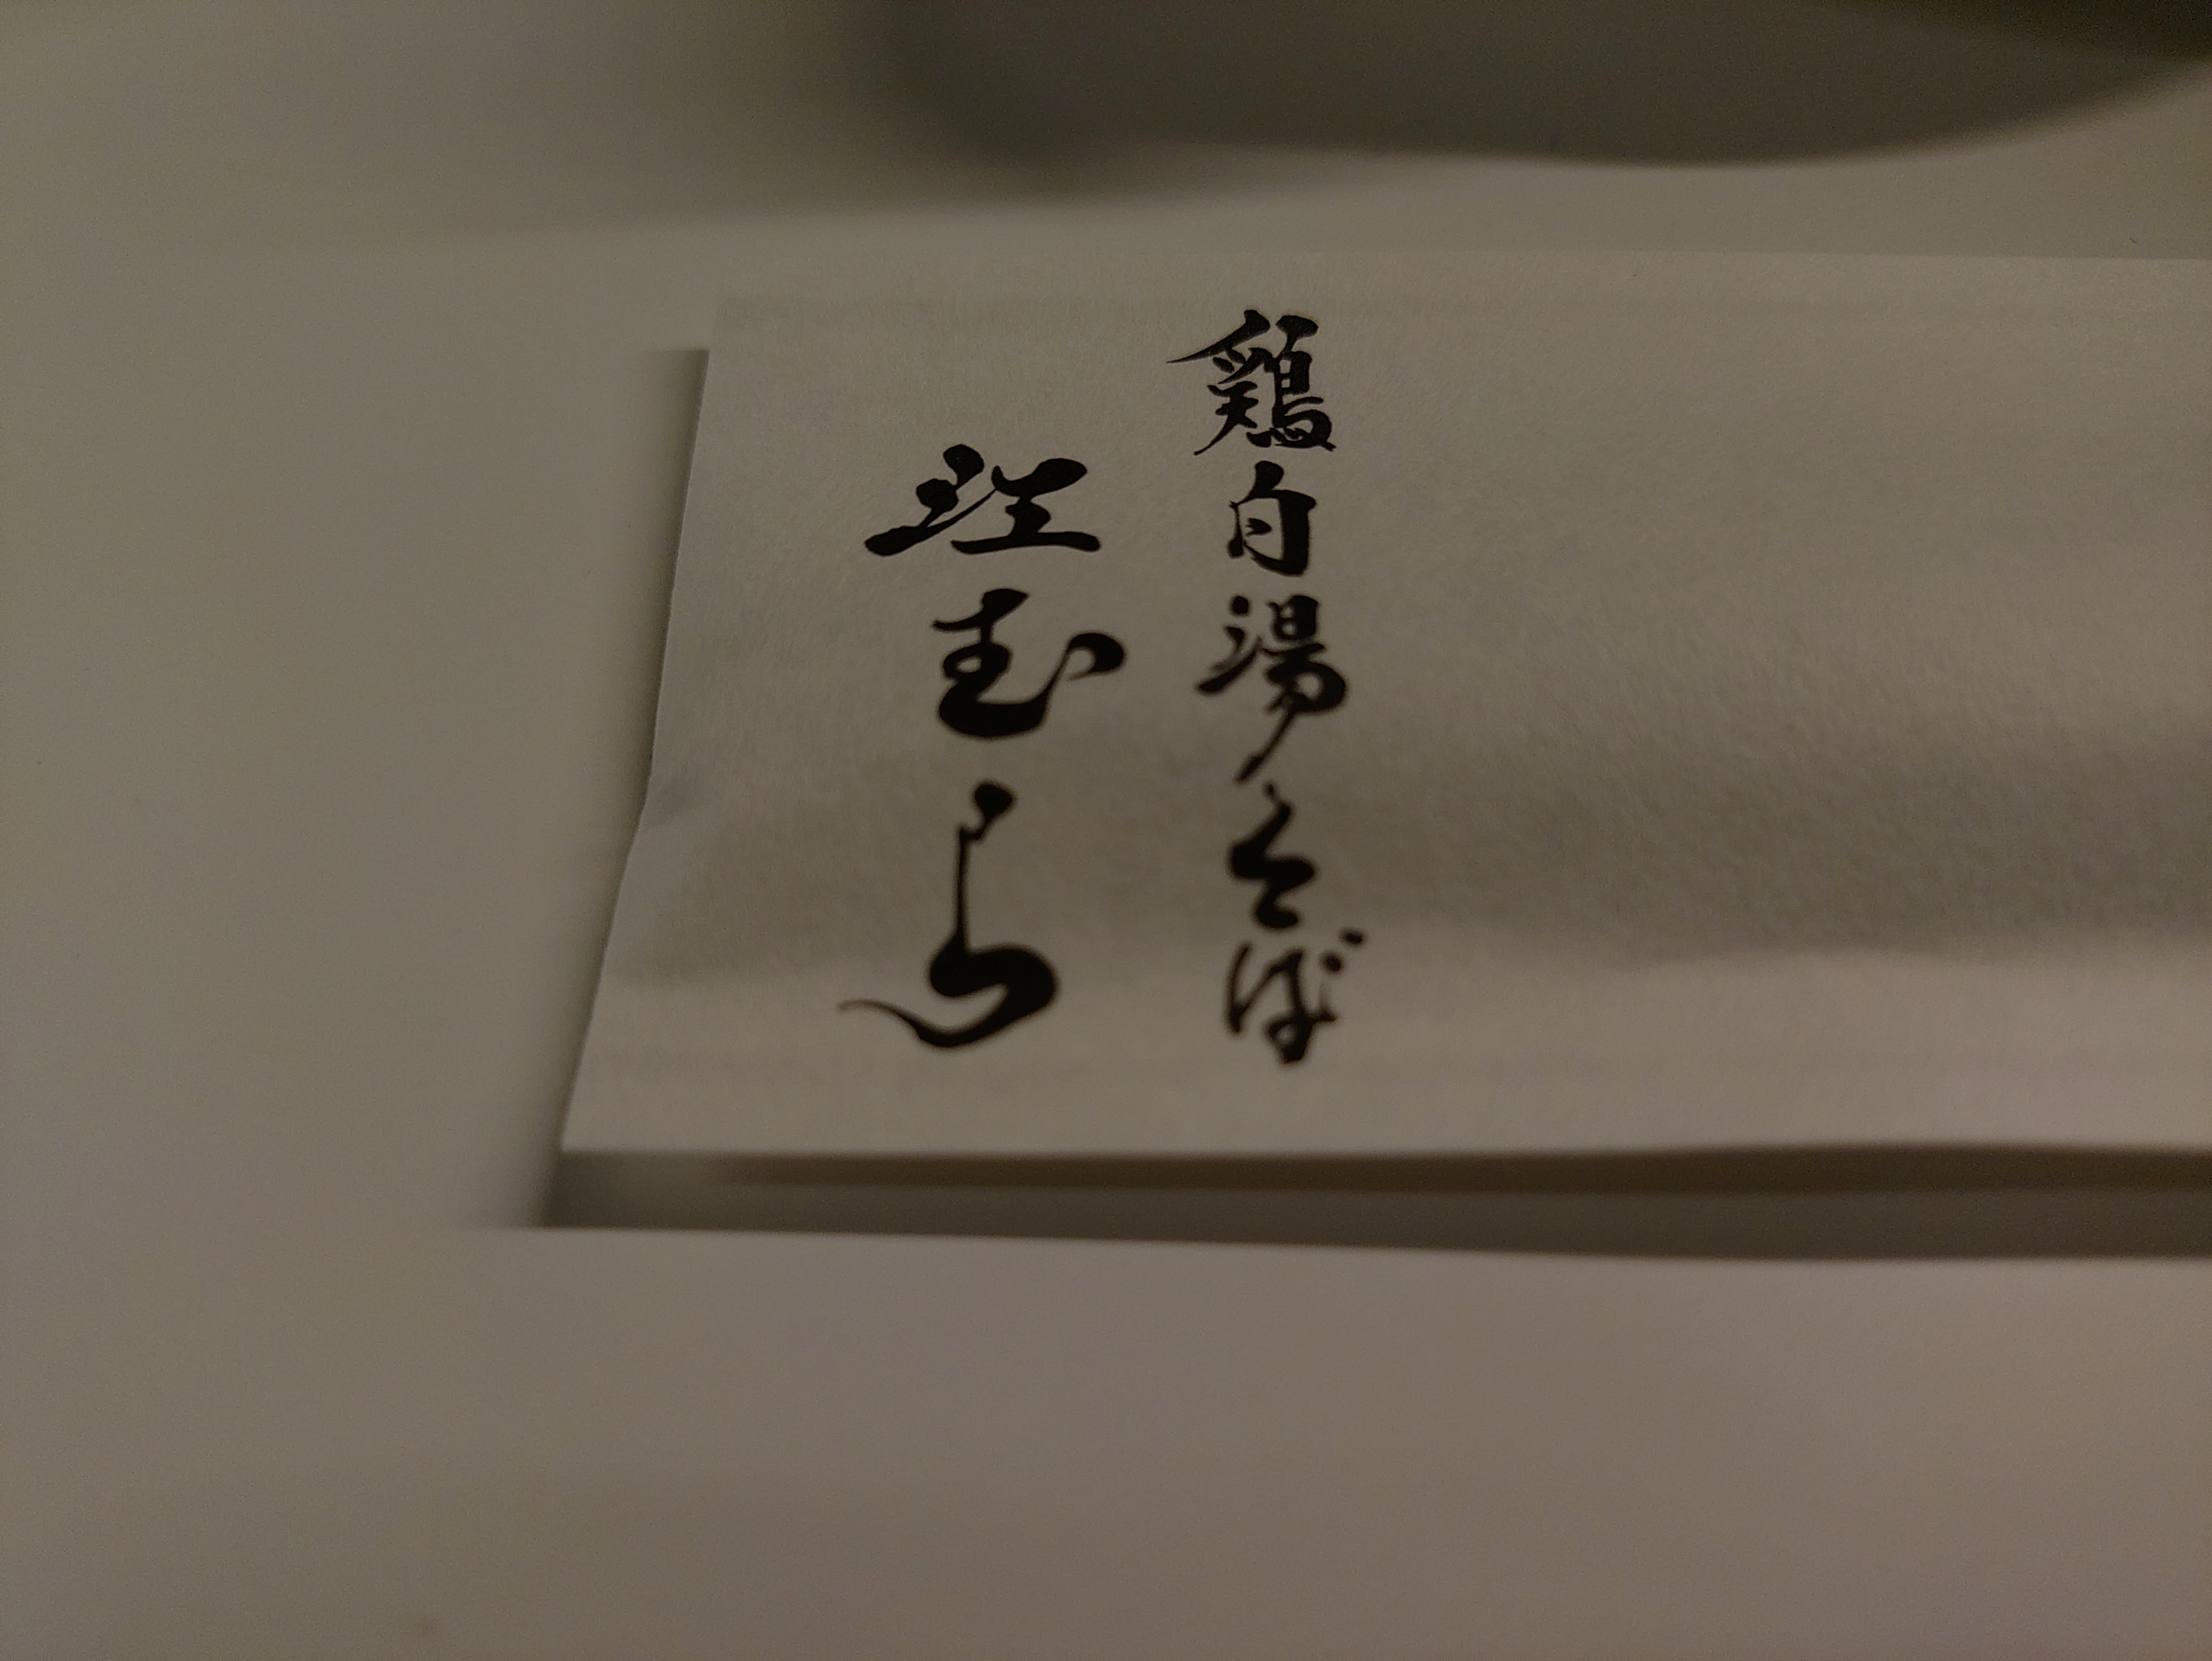 鶏白湯そば
江むら